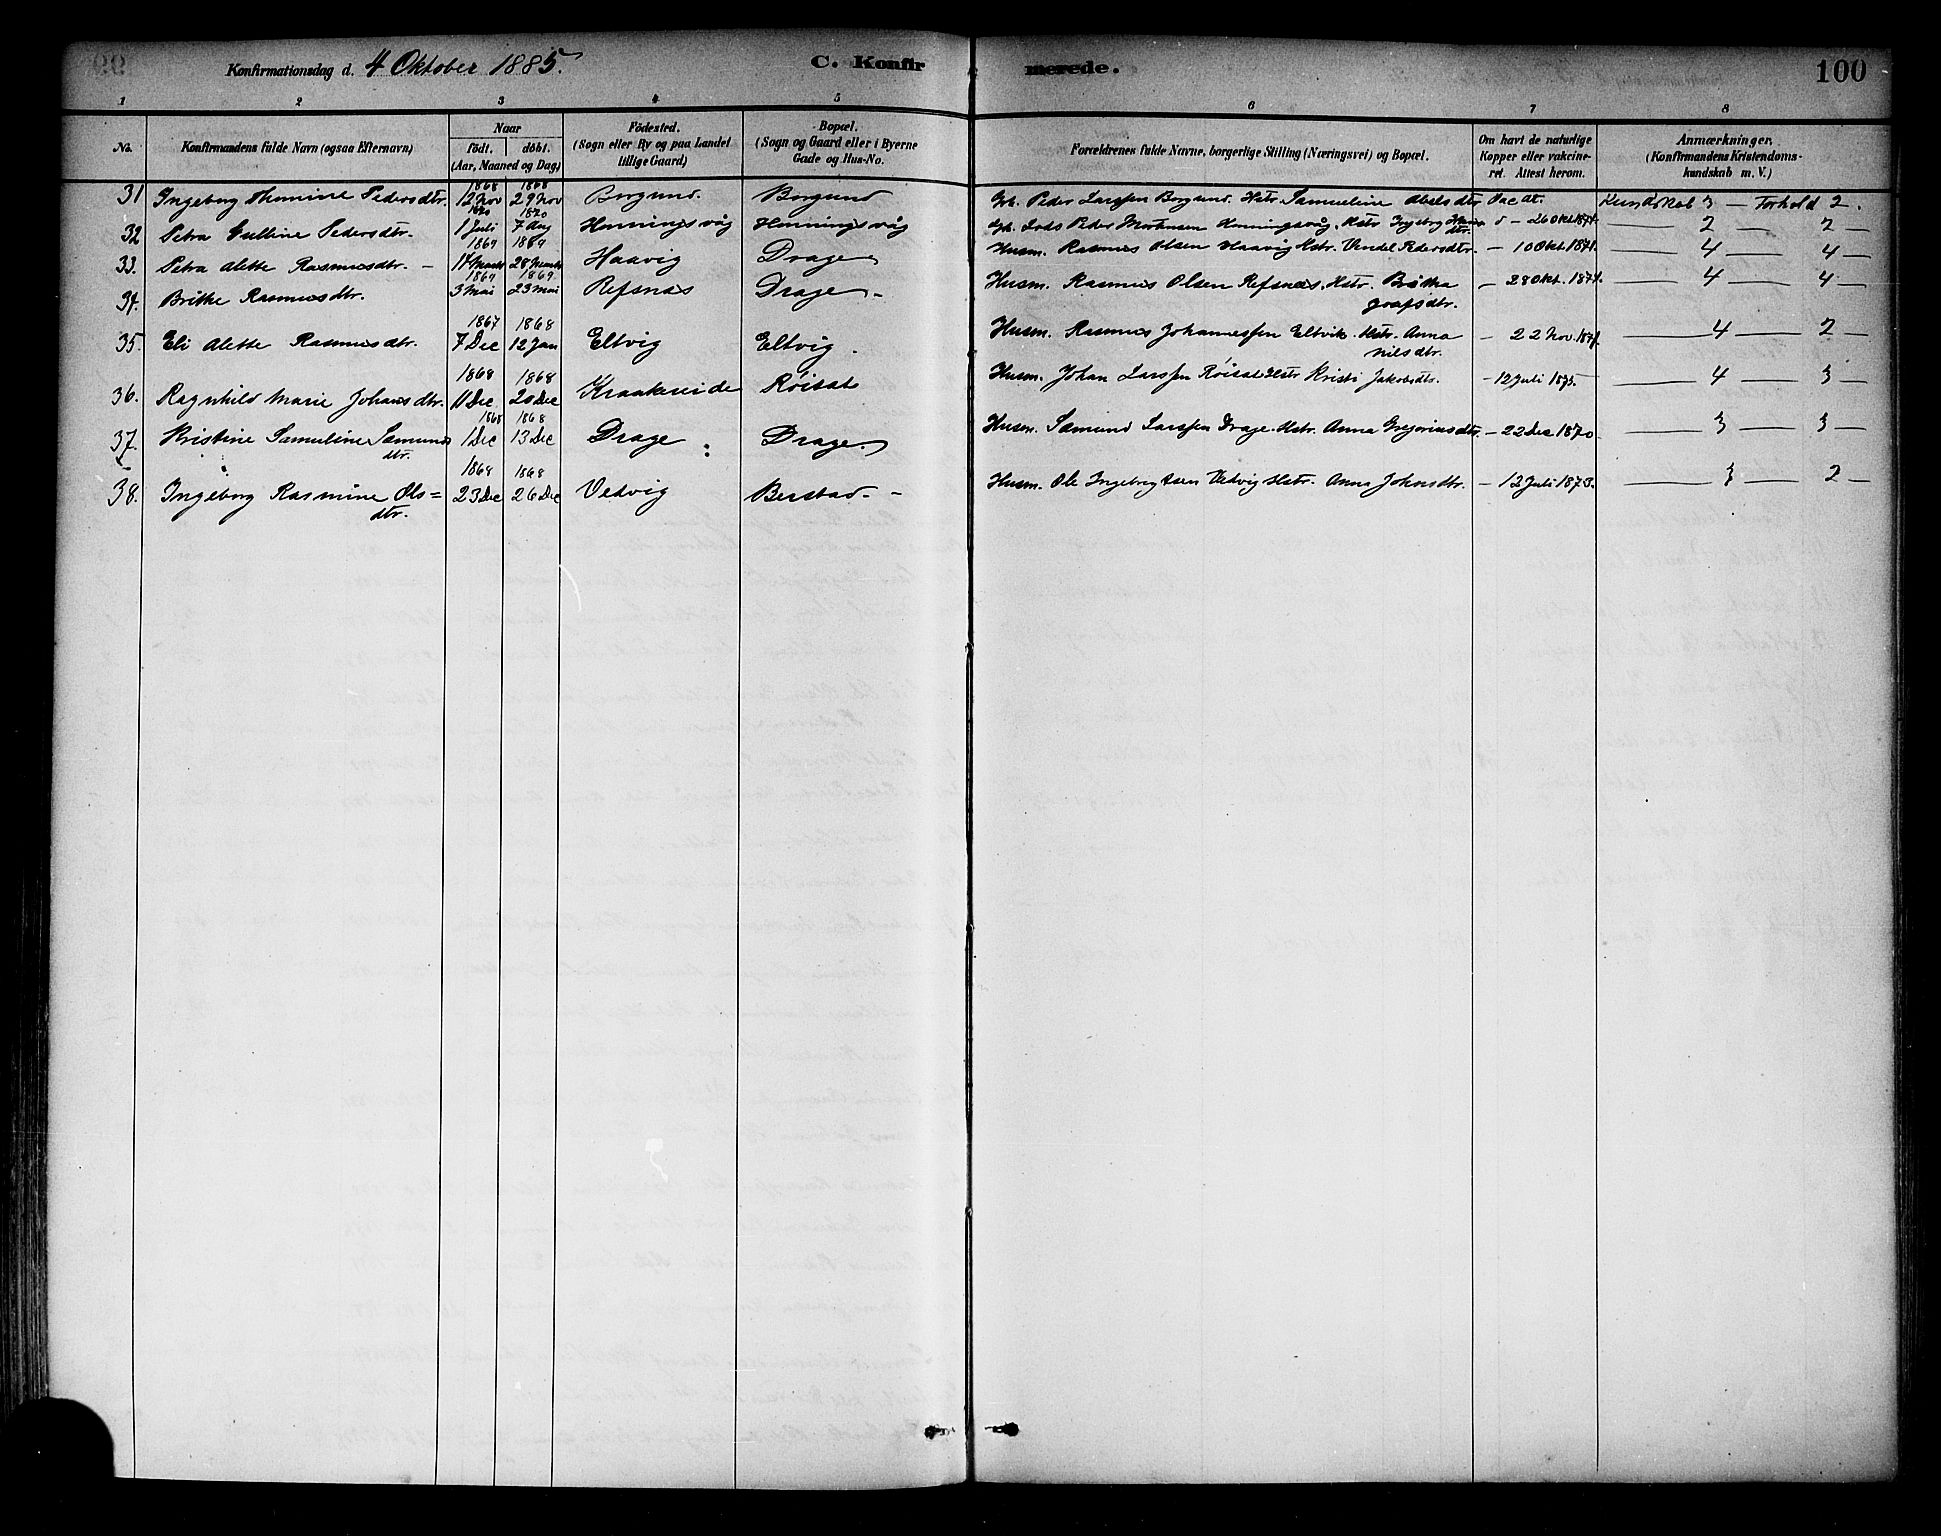 Konfirmationsdag d. 4 Oktober 1885. C. Konfirmerede. 100
1 2 3 4 5 6 7 8
No. Konfirmandens fulde Navn (ogsaa Efternavn) Naar födt. döbt. (Aar, Maaned og Dag) Födested. (Sogn eller By og paa Landet tillige Gaard) Bopæl. (Sogn og Gaard eller i Byerne Gade og Hus-No. Forældrenes fulde Navne, borgerlige Stilling (Næringsvei) og Bopæl. Om havt de naturlige Kopper eller vakcineret. Attest herom. Anmærkninger. (Konfirmandens Kristendomskundskab m. V.)
31 Ingeborg Thomine Pedersdtr. 1868 12 Nov 1868 29 Nov Borgund. Borgund Gb. Peder Larssen Borgund. Hstr. Samueline Abelsdtr. Vac at. Kundskab 3 — Forhold 2.
32 Petra Gulline Pedersdtr. 1870 1 Juli 1870 7 Aug Honningsvåg Honningsvåg Gb. Lods Peder Mortensen Honningsvåg, Hstr Ingeborg d - 26 Okt 1874. — 2 — 2 —
33. Petra Alette Rasmusdtr. — 1869 14 Marts 1869 28 Marts Haavig Drage Husm. Rasmus Olsen Haavig Hstr. Vendel Pedersdtr. — 10 Okt. 1874. — 4 — 4 —
34. Brithe Rasmusdtr. 1869 3 Mai 1869. 23 Mai Refsnæs Drage - Husm. Rasmus Olsen Refsnæs. Hstr. Britha — 28 Okt. 1874. — 4 — 4 —
35. Eli Alette Rasmusdtr. 1867 7 Dec 1868 12 Jan Eltvig Eltvig. Husm. Rasmus Johannessen Eltvik. Hstr. Anna Nilsdtr. — 22 Nov. 1874. — 4 — 2 —
36. Ragnhild Marie Johansdtr. 1868 11 Dec 1868 20 Dec Kraakereide Röisat Husm. Johan Larssen Röisat Hstr Kristi Jakobsdtr. — 12 Juli 1875. — 4 — 3 —
37. Kristine Samuline Samunds dtr. 1868 1 Dec 1868 13 Dec Drage Drage Husm. Samund Larssen Drage Hstr. Anna Gregoriusdtr. — 22 Dec 1870. — 3 — 3 —
38. Ingeborg Rasmine Ols= dtr. 1868 23 Dec 1868 26 Dec Vedvig Berstad. - Husm. Ole Ingebrigtsen Vedvig Hstr. Anna Johnsdtr. — 12 Juli 1873. — 3 — 2 —